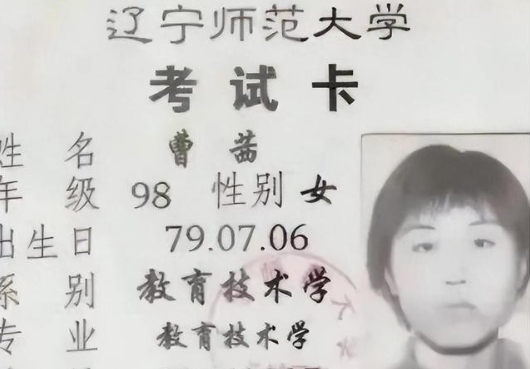 辽宁师范大学
考试卡
姓 名 曹 茜
年 级 98 性别 女
出生日 79.07.06
系 别 教育技术学
专 业 教育技术学